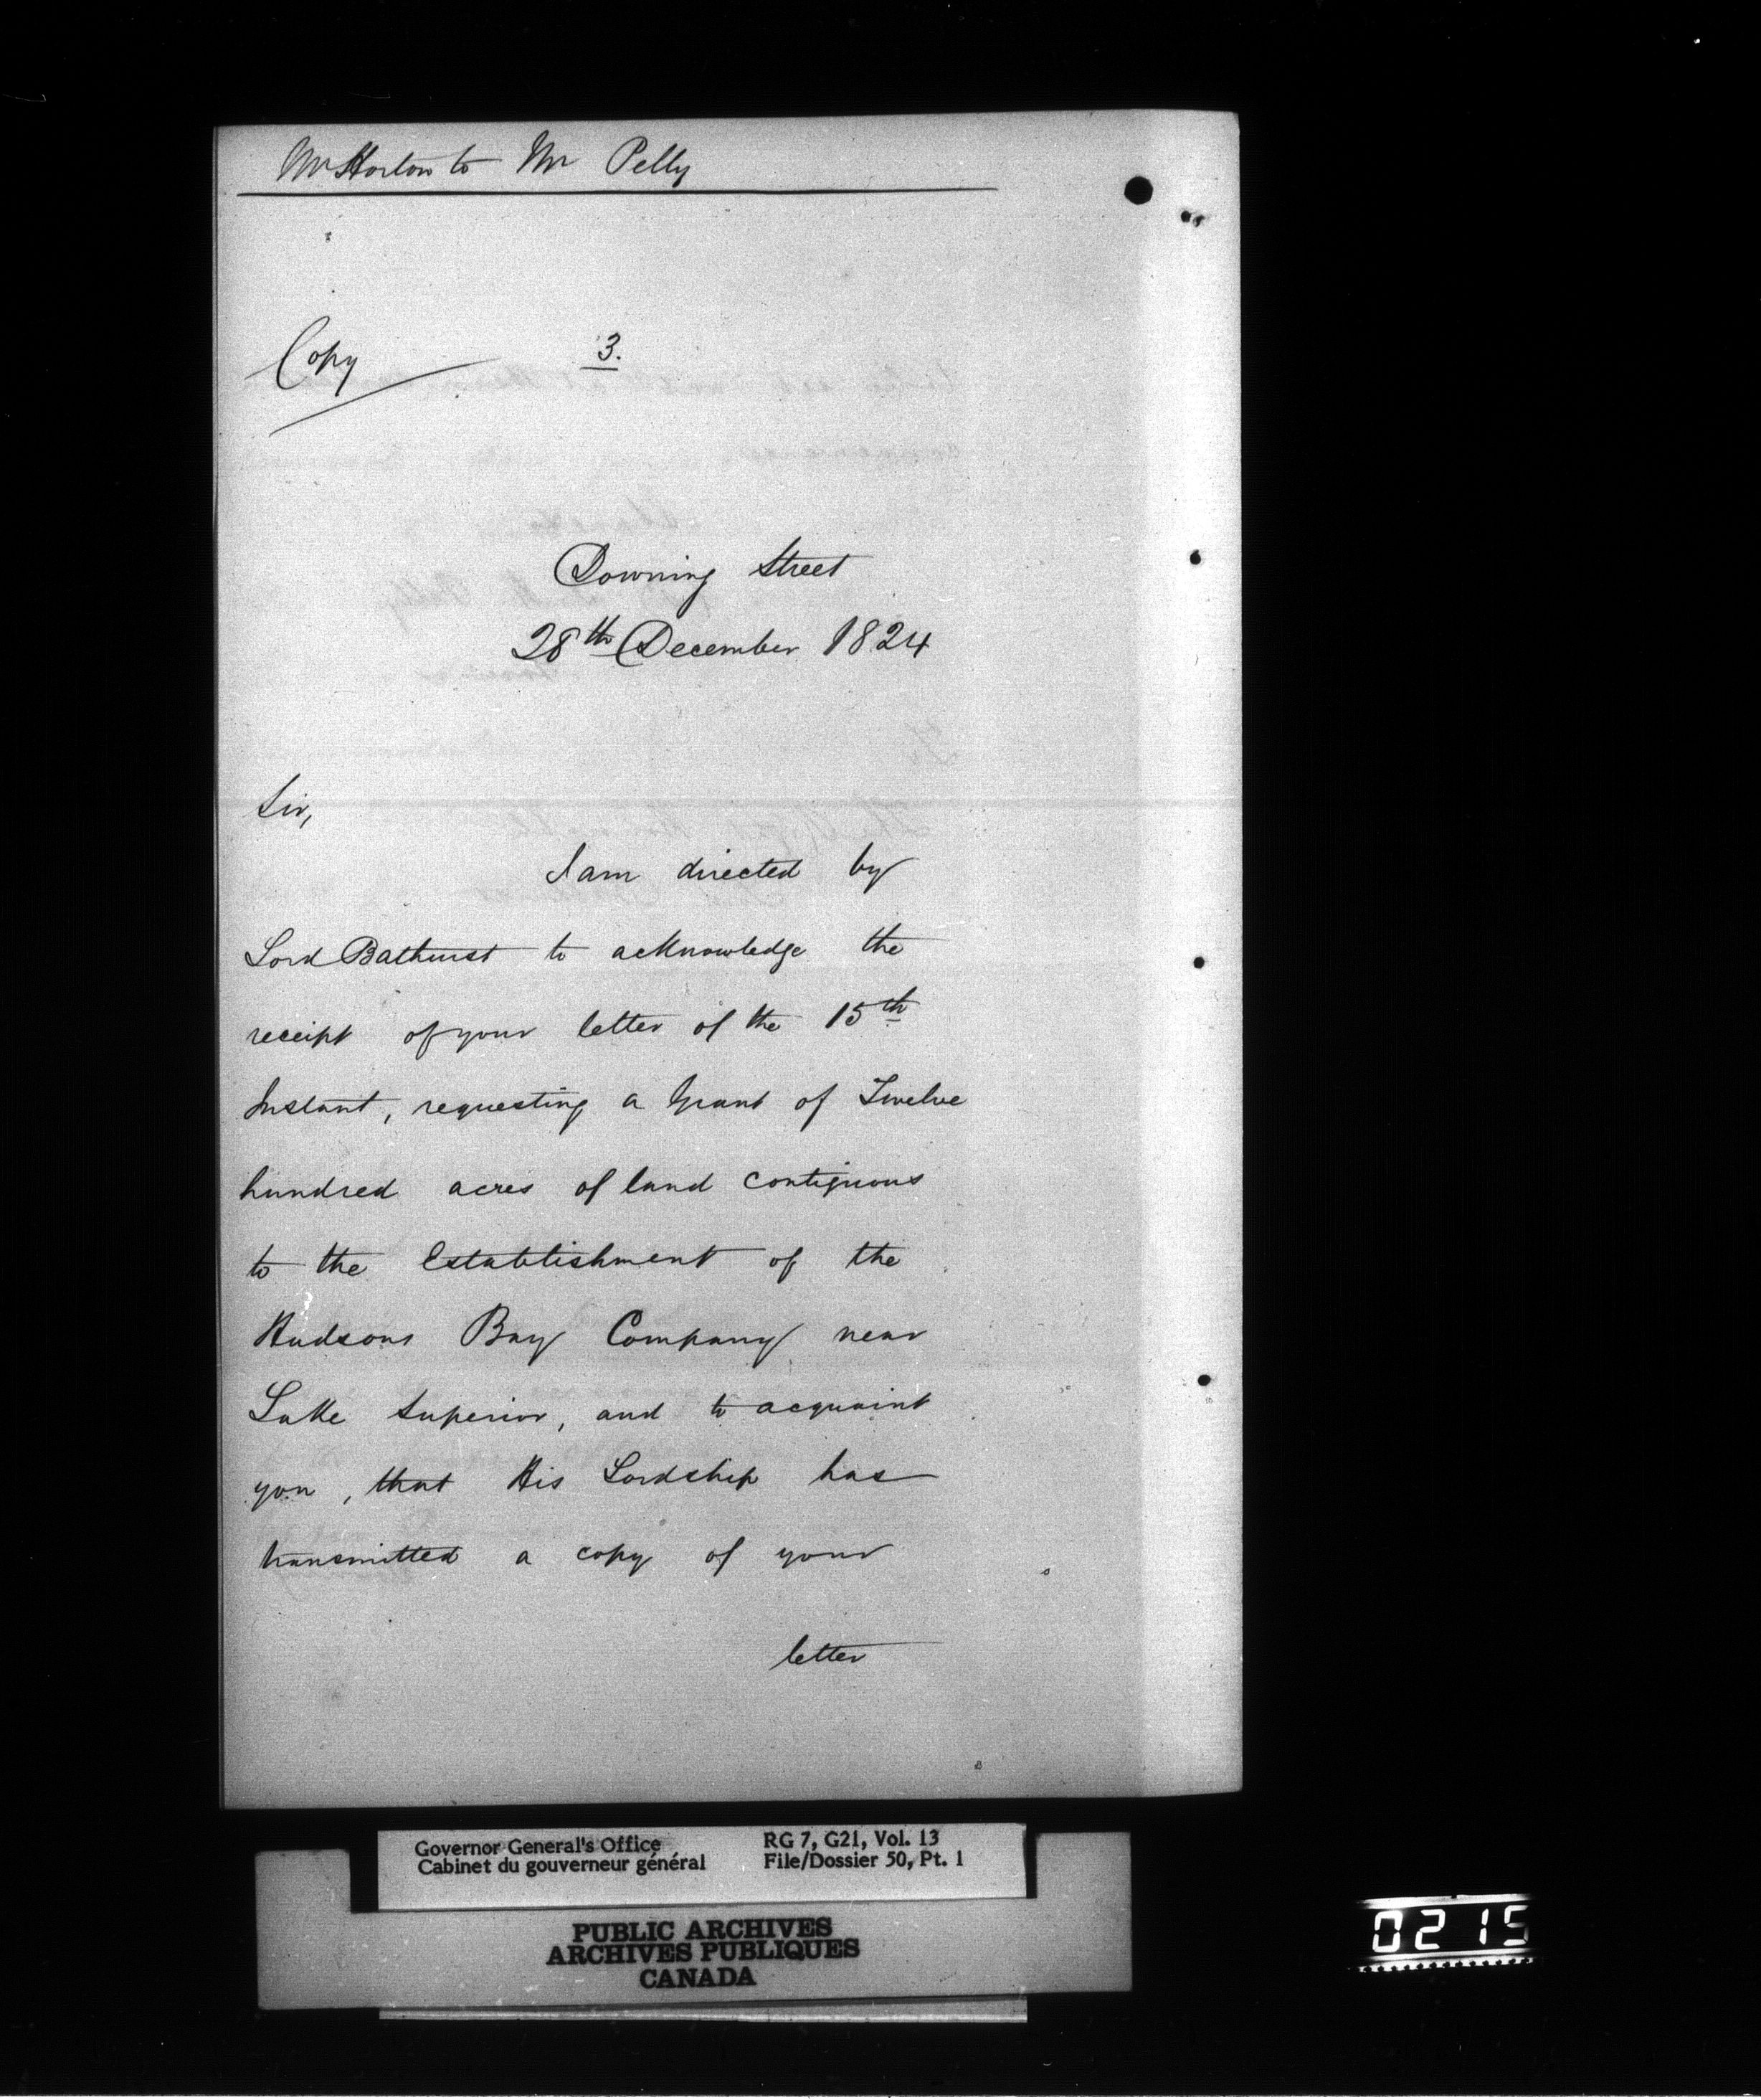 Mr Horton to Mr Pelly
Copy
3.
Downing Street
28th December 1824
Sir,
I am directed by
Lord Bathurst to acknowledge the
receipt of your letter of the 15th
Instant, requesting a Grant of Twelve
hundred acres of land contiguous
to the Establishment of the
Hudsons Bay Company near
Lake Superior, and to acquaint
you, that His Lordship has
transmitted a copy of your
letter
Governor General's Office
Cabinet du gouverneur général
RG 7, G21, Vol. 13
File/Dossier 50, Pt. 1
PUBLIC ARCHIVES
ARCHIVES PUBLIQUES
CANADA
0215